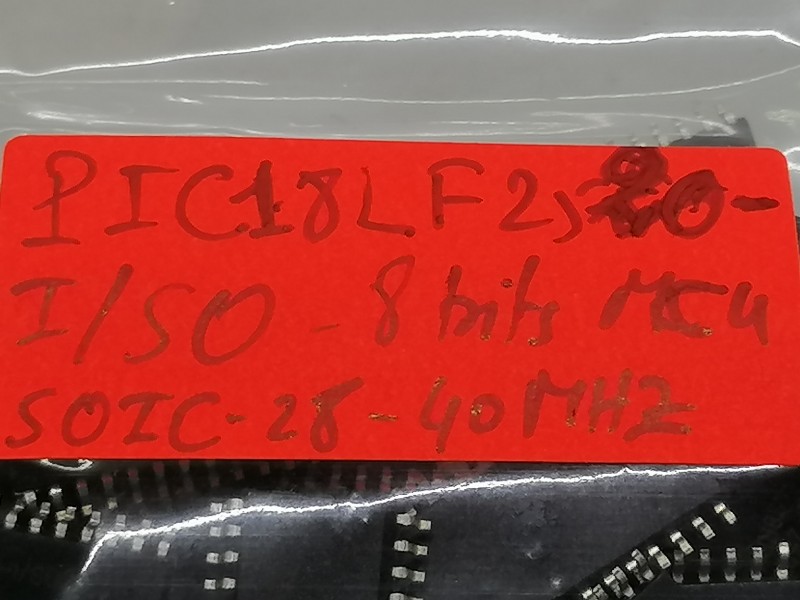 PIC18LF2580-
I/SO - 8 bits MCU
SOIC-28-40MHZ